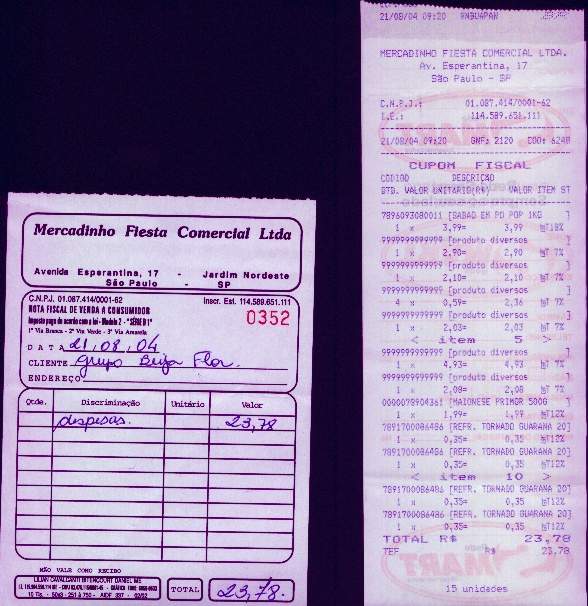 Mercadinho Fiesta Comercial Ltda
Avenida Esperantina, 17 - Jardim Nordeste
São Paulo - SP
C.N.P.J. 01.087.414/0001-62 Inscr. Est. 114.589.651.111
NOTA FISCAL DE VENDA A CONSUMIDOR
Imposto pago de acordo com a lei - Modelo 2 - "SÉRIE D 1"
0352
1ª Via Branca - 2ª Via Verde - 3ª Via Amarela
DATA 21,08,04
CLIENTE Grupo Beija Flor.
ENDEREÇO
Qtde. Discriminação Unitário Valor
despesas. 23,78
NÃO VALE COMO RECIBO
TOTAL 23,78.
21/08/04 09:20
MERCADINHO FIESTA COMERCIAL LTDA.
Av. Esperantina, 17
São Paulo - SP
C.N.P.J.: 01.087.414/0001-62
I.E.: 114.589.651.111
21/08/04 09:20 GNF: 2120 COO: 6248
CUPOM FISCAL
CODIGO DESCRIÇÃO
QTD. VALOR UNITARIO(R$) VALOR ITEM ST
7896093080011 [SABAO EM PO POP 1KG ]
1 x 3,99= 3,99 T18%
9999999999999 [produto diversos ]
1 x 2,90= 2,90 T 7%
9999999999999 [produto diversos ]
1 x 2,10= 2,10 T 7%
9999999999999 [produto diversos ]
4 x 0,59= 2,36 T 7%
9999999999999 [produto diversos ]
1 x 2,03= 2,03 T 7%
< item 5 >
9999999999999 [produto diversos ]
1 x 4,93= 4,93 T 7%
9999999999999 [produto diversos ]
1 x 2,08= 2,08 T 7%
0000078904361 [MAIONESE PRIMOR 500G ]
1 x 1,99= 1,99 T12%
7891700086486 [REFR. TORNADO GUARANA 20]
1 x 0,35= 0,35 T12%
7891700086486 [REFR. TORNADO GUARANA 20]
1 x 0,35= 0,35 T12%
< item 10 >
7891700086486 [REFR. TORNADO GUARANA 20]
1 x 0,35= 0,35 T12%
7891700086486 [REFR. TORNADO GUARANA 20]
1 x 0,35= 0,35 T12%
TOTAL R$ 23,78
TEF R$ 23,78
MART
15 unidades